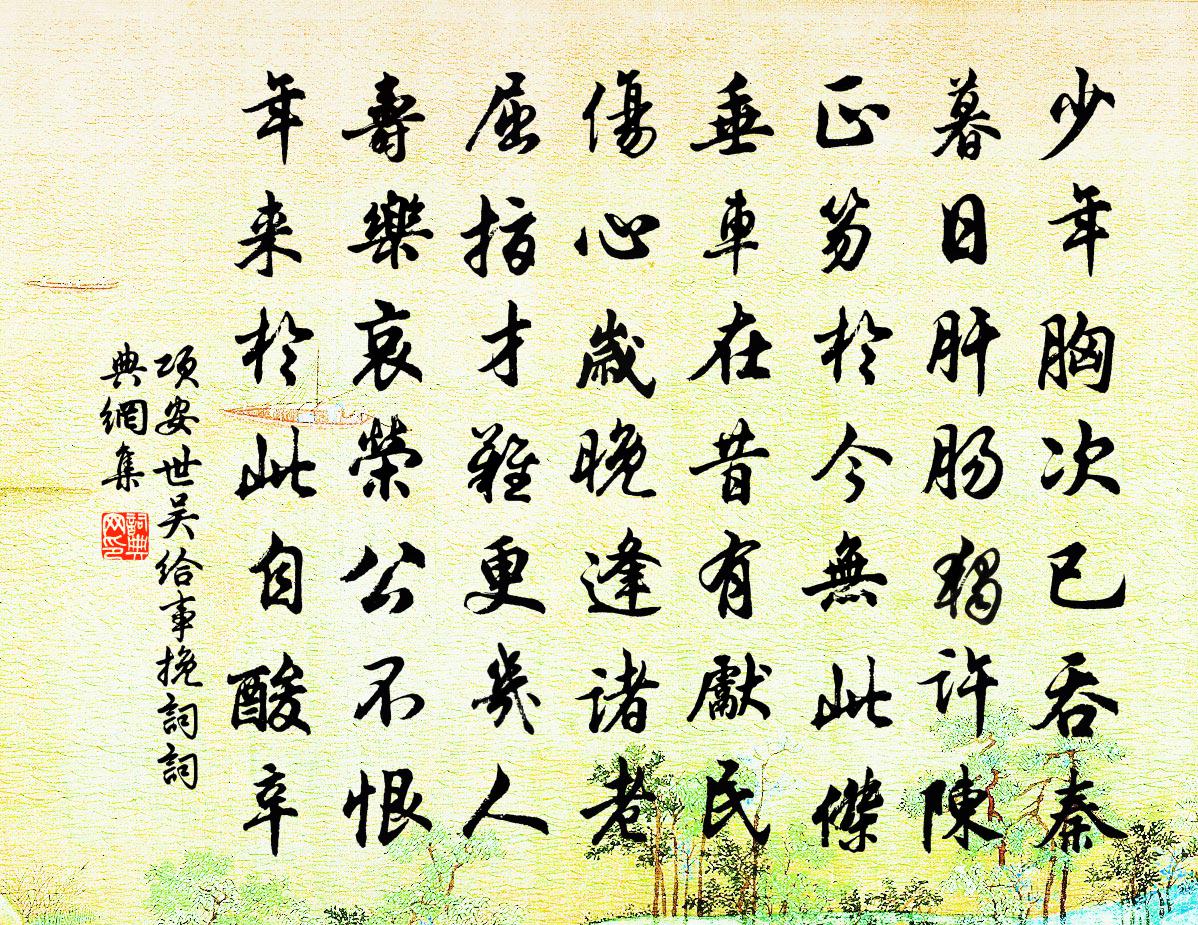 少年胸次已吞秦
暮日肝肠獨許陳
正笏於今無此傑
垂車在昔有獻民
傷心歲晚逢諸老
屈指才難更幾人
壽樂哀榮公不恨
年来於此自酸辛
項安世吴給事挽詞詞
典網集
詞典
网印